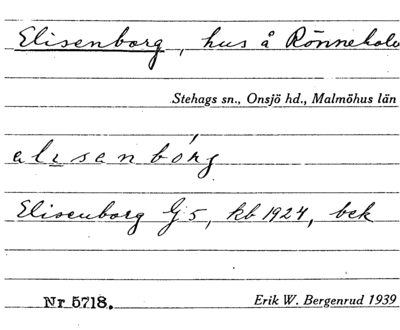 Elisenborg, hus å Rönneholm
Stehags sn., Onsjö hd., Malmöhus län
elisenbórg
Elisenborg G5, kb 1924, bek
Nr 5718. Erik W. Bergenrud 1939